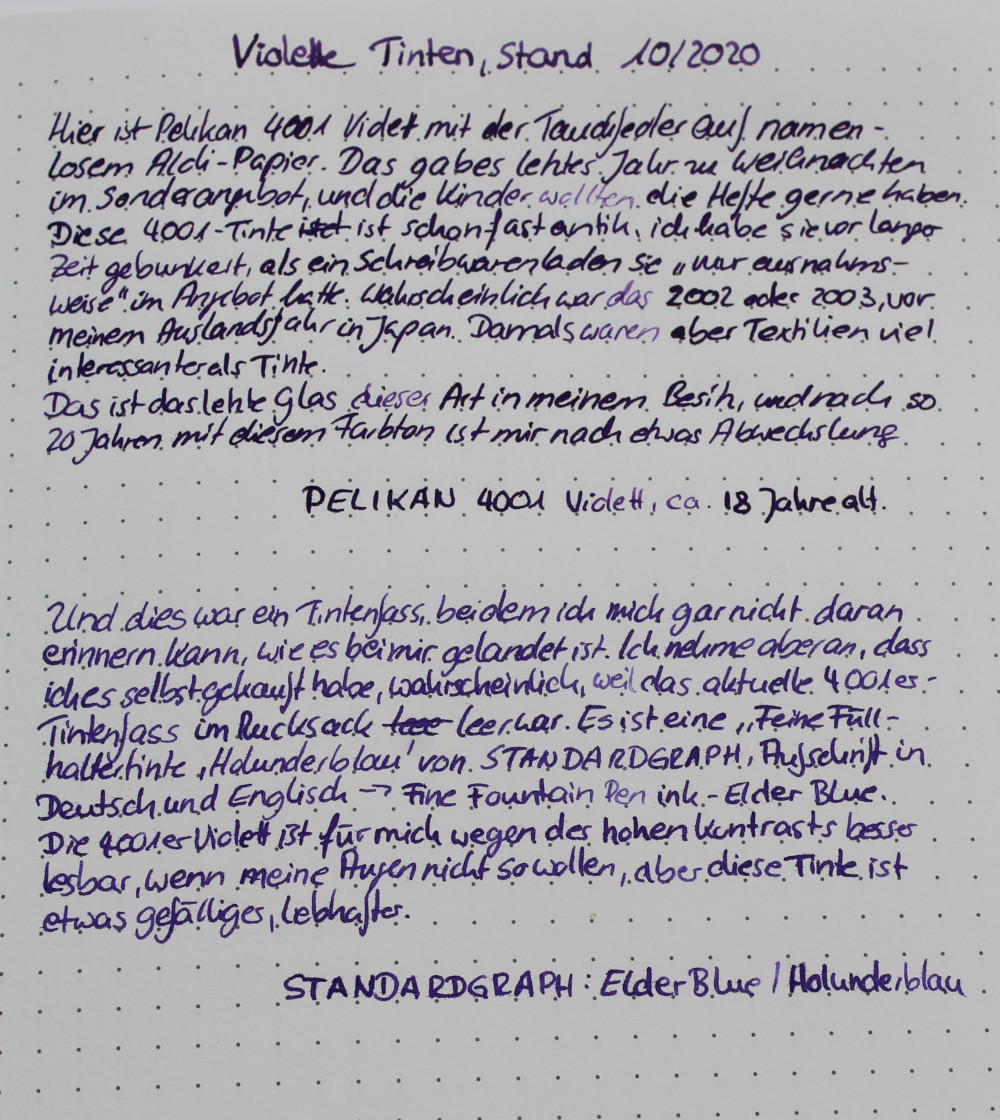 Violette Tinten, Stand 10/2020
Hier ist Pelikan 4001 Violett mit der Tauchfeder auf namen-
losem Aldi-Papier. Das gab es letztes Jahr zu Weihnachten
im Sonderangebot, und die Kinder wollten die Hefte gerne haben.
Diese 4001-Tinte ist ist schon fast antik, ich habe sie vor langer
Zeit gebunkert, als ein Schreibwarenladen sie „nur ausnahms-
weise" im Angebot hatte. Wahrscheinlich war das 2002 oder 2003, vor
meinem Auslandsjahr in Japan. Damals waren aber Textilien viel
interessanter als Tinte.
Das ist das letzte Glas dieser Art in meinem Besitz, und nach so
20 Jahren mit diesem Farbton ist mir nach etwas Abwechslung
PELIKAN 4001 Violett, ca. 18 Jahre alt.
Und dies war ein Tintenfass, bei dem ich mich gar nicht daran
erinnern kann, wie es bei mir gelandet ist. Ich nehme aber an, dass
ich es selbst gekauft habe, wahrscheinlich, weil das aktuelle 4001er-
Tintenfass im Rucksack leer war. Es ist eine „Feine Füll-
haltertinte ‚Holunderblau' von STANDARDGRAPH, Aufschrift in
Deutsch und Englisch → Fine Fountain Pen ink - Elder Blue.
Die 4001er Violett ist für mich wegen des hohen Kontrasts besser
lesbar, wenn meine Augen nicht so wollen, aber diese Tinte ist
etwas gefälliger, lebhafter.
STANDARDGRAPH: Elder Blue / Holunderblau